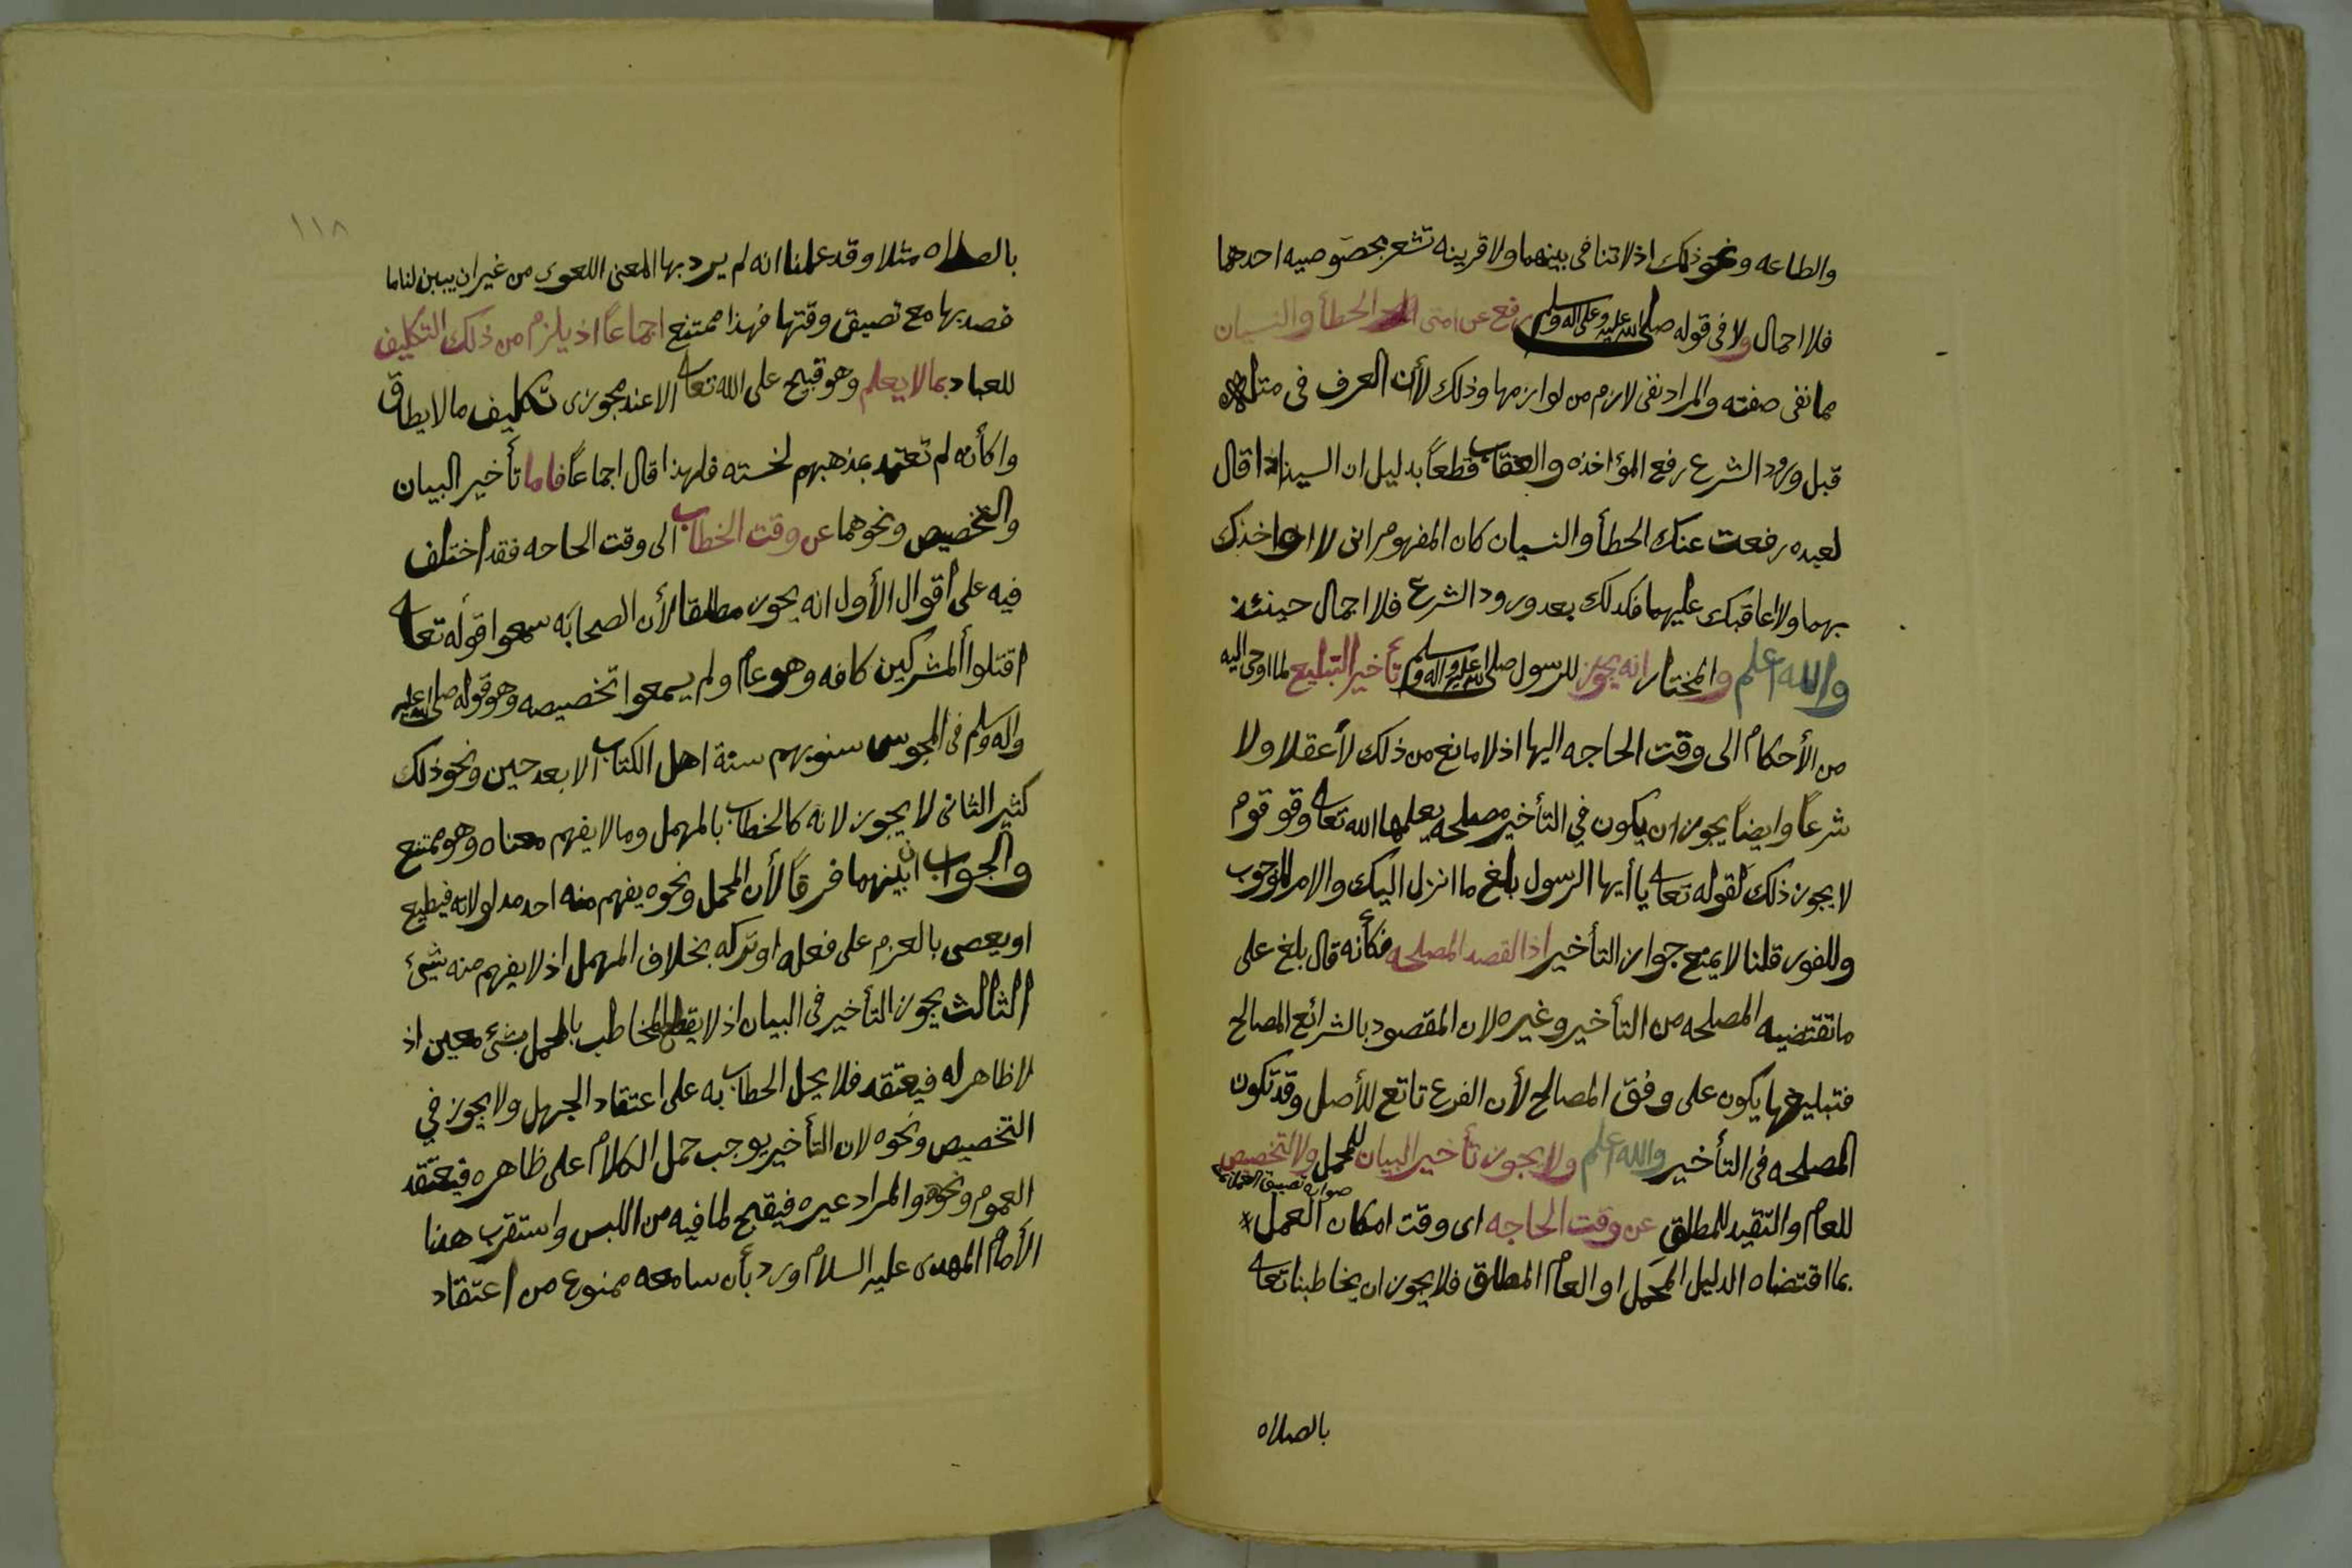 والطاعه ونحو ذلك اذ لا تنافى بينهما ولا قرينه تشعر بخصوصيه احدهما
فلا اجمال ولا فى قوله صلى الله عليه وعلى اله وسلم رفع عن امتى الخطأ والنسيان
مما نفى صفته والمراد نفى لازم من لوازمها وذلك لأن العرف فى مثله
قبل ورود الشرع رفع المؤاخذه والعقاب قطعاً بدليل ان السيد اذا قال
لعبده رفعت عنك الخطأ والنسيان كان المفهوم انى لا اواخذك
بهما ولا اعاقبك عليهما فكذلك بعد ورود الشرع فلا اجمال حينئذ
والله اعلم والمختار انه يجوز للرسول صلى الله عليه واله وسلم تأخير التبليع لما اوحى اليه
من الأحكام الى وقت الحاجه اليها اذ لا مانع من ذلك لا عقلا ولا
شرعاً وايضاً يجوز ان يكون في التأخير مصلحه يعلمها الله تعالى وقو قوم
لا يجوز ذلك لقوله تعالى يا أيها الرسول بلغ ما انزل اليك والامر للوجوب
وللفور قلنا لا يمنع جواز التأخير اذ القصد المصلحه فكأنه قال بلغ على
ما تقتضيه المصلحه من التأخير وغيره لان المقصود بالشرائع المصالح
فتبليغها يكون على وفق المصالح لأن الفرع تابع للأصل وقد تكون
المصلحه فى التأخير والله اعلم ولا يجوز تأخير البيان للمجمل ولا التخصيص
صوابه تضييق العمل
للعام والتقيد للمطلق عن وقت الحاجه اى وقت امكان العمل
بما اقتضاه الدليل المجمل او العام المطلق فلا يجوز ان يخاطبنا تعالى
بالصلاه
١١٨
بالصلاه مثلا وقد علمنا انه لم يرد بها المعنى اللغوى من غير ان يبين لنا ما
قصد بها مع تضيق وقتها فهذا ممتنع اجماعاً اذ يلزم من ذلك التكليف
للعباد بما لا يعلم وهو قبيح على الله تعالى الا عند مجوزى تكليف ما لا يطاق
واكأنه لم تعتمد بمذهبهم لخسته فلهذا قال اجماعاً فاما تأخير البيان
والتخصيص ونحوهما عن وقت الخطاب الى وقت الحاجه فقد اختلف
فيه على اقوال الأول انه يجوز مطلقا لأن الصحابه سمعوا قوله تعالى
اقتلوا المشركين كافه وهو عام ولم يسمعوا تخصيصه وهو قوله صلى الله عليه
واله وسلم فى المجوس سنو بهم سنة اهل الكتاب الا بعد حين ونحو ذلك
كثير الثانى لا يجوز لانه كالخطاب بالمهمل وما لا يفهم معناه وهو ممتنع
والجواب ان بينهما فرقاً لأن المجمل ونحوه يفهم منه احد مدلولاته فيطيع
او يعصى بالعزم على فعله او تركه بخلاف المهمل اذ لا يفهم منه شئ
الثالث يجوز التأخير فى البيان اذ لا يقطع المخاطب بالمجمل بشئ معين اذ
لا ظاهر له فيعتقد فلا يحل الخطاب به على اعتقاد الجهل ولا يجوز في
التخصيص ونحوه لان التأخير يوجب حمل الكلام على ظاهره فيعتقد
العموم ونحوه والمراد غيره فيقبح لما فيه من اللبس واستقرب هذا
الأمام المهدى عليه السلام ورد بأن سامعه ممنوع من اعتقاد